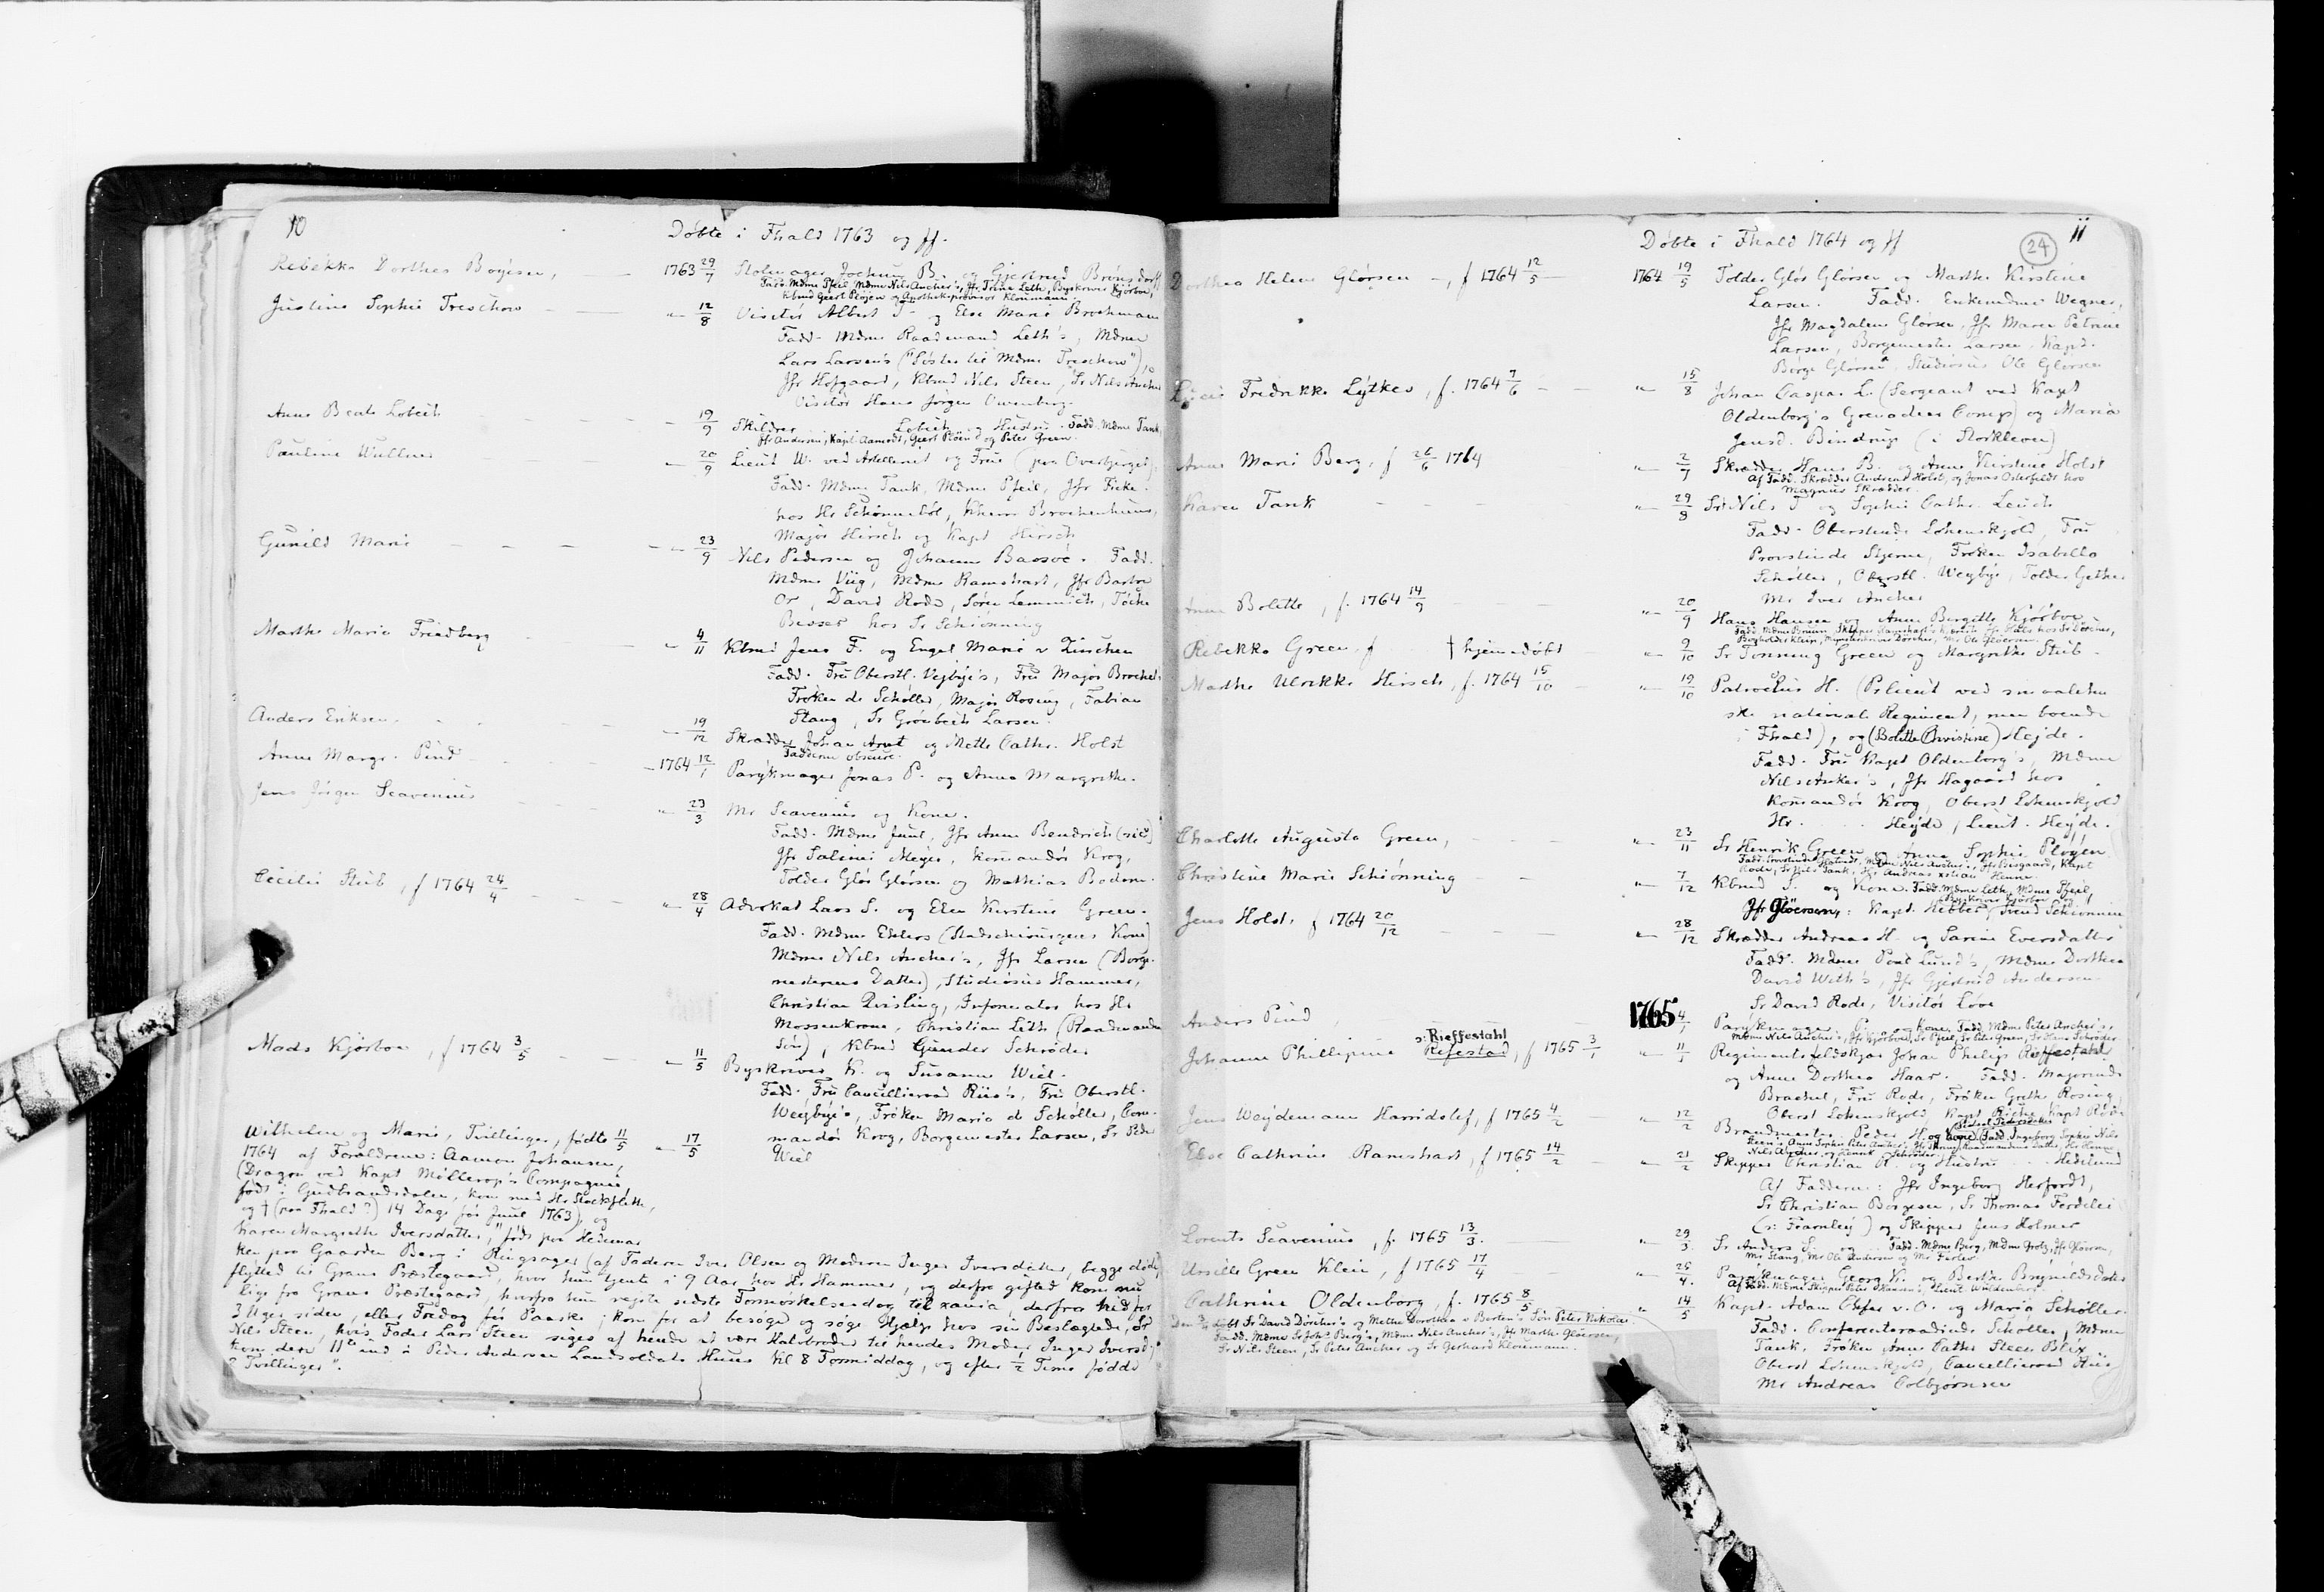 10
Døbte i Fhald 1763 og ff.
Rebekka Dorthea Boyesen, 1763 29/7 Stolmager Jochum B. og Gjertrud Brønsdorff
Fadd. Mdme Pfeil, Mdme Nils Ancher's, Jfr Trine Leth, Byskriver Kjörboe,
Kbmd Geert Pløjen og Apothekprovisor Kloumann.
Justine Sophie Treschow " 12/8 Visitør Albert T. og Else Marie Brochmann
Fadd. Mdme Raadmand Leth's, Mdme
Lars Larsen's ("Søster til Mdme Treschow"),
Jfr Hofgaard, Kbmd Nils Steen, Sr Nils Ancher
Visitør Hans Jørgen Owenberg.
Anne Beate Lobeth " 19/9 Skildrer Lobeth og Hustru. Fadd. Mdme Tank,
Jfr Andersen, Kapt. Aamodt, Geert Pløen og Peter Green.
Pauline Wullner " 20/9 Lieut W. ved Artelleriet og Frue (paa Overbjerget).
Fadd. Mdme Tank, Mdme Pfeil, Jfr Ficke
hos Hr Schønnebøl, Kherre Brochenhuus,
Major Hirsch og Kapt Hirsch
Gunild Marie " 23/9 Nils Pedersen og Johanne Baasøe. Fadd.
Mdme Viig, Mdme Ramshart, Jfr Barbra
Or, David Rode, Søren Lemmich, Tøcke
Besser hos Sr Schiønning
Marthe Maria Friedberg " 4/11 Kbmd Jens F. og Engel Marie v Zinschen
Fadd. Fru Oberstl. Vejbye's, Fru Major Brochel
Frøken de Schøller, Major Rosing, Fabian
Stang, Sr Grönbech Larsen.
Anders Eriksen. " 19/12 Skrædder Johan Arnt og Mette Cathr. Holst
Fadderne obscure.
Anne Margr. Pind 1764 12/1 Parykmager Jonas P. og Anna Margrethe.
Jens Jörgen Scavenius " 23/3 Mr Scavenius og Kone.
Fadd. Mdme Juul, Jfr Anne Bendrich (sic)
Jfr Salimi Meyer, Komandør Krog,
Tolder Glør Glørsen og Mathias Bodom.
Cecilie Stub, f 1764 24/4 " 28/4 Advokat Lars S. og Elen Kirstine Green.
Fadd. Mdme Ehlers (Stadschirurgens Kone)
Mdme Nils Ancher's, Jfr Larsen (Borge-
mesterens Datter), Studiosus Hammer,
Christian Qvisling, Informator hos Hr
Mossenkrone, Christian Leth (Raadmandens
Søn), Kbmd Gunder Schrøder
Mads Kjørboe, f 1764 3/5 " 11/5 Byskriver K. og Susanne Wiel.
Fadd. Fru Cancellieraad Riis's, Fru Oberstl.
Weybye's, Frøken Maria de Schøller, Com-
mandør Krog, Borgemester Larsen, Sr Peder
Wiel
Wilhelm og Marie, Tvillinger, fødte 11/5 " 17/5
1764 af Forældrene: Aamon Johansen,
(Dragon ved Kapt Møllerop's Compagnie,
født i Gudbrandsdalen, kom med Hr Stockfleth,
og † (paa Fhald?) 14 Dage før Juul 1763), og
Karen Margrethe Iversdatter, "født paa Hedemar
ken paa Gaarden Berg i Ringsager (af Faderen Iver Olsen og Moderen Inger Iversdatter, begge døde)
flytted til Grans Præstegaard, hvor hun tjente i 9 Aar hos Hr Hammer, og derfra gifted kom nu
lige fra Grans Præstegaard, hvorfra hun rejste sidste Formørkelsesdag til xania, derfra hid for
3 Uger siden, eller Fredag før Paaske; kom for at besøge og søge Hjælp hos sin Beslægtede, Sr
Nils Steen, hvis Fader Lars Steen siges af hende at være Halvbroder til hendes Moder Inger Iversd.;
kom den 11te ind i Peder Andersen Landsoldats Huus Kl 8 Formiddag, og efter ½ Time fødde
2 Tvillinger".
11
24
Døbte i Fhald 1764 og ff
Dorthea Helene Glørsen, f 1764 12/5 1764 19/5 Tolder Glør Glørsen og Marthe Kirstine
Larsen. Fadd. Enkemdme Wegner,
Jfr Magdalene Glørsen, Jfr Maren Petrine
Larsen, Borgemester Larsen, Kapt.
Børge Glørsen, Studiosus Ole Glørsen
Fredrikke Lýtkes, f. 1764 7/6 " 15/8 Johan Caspar L. (Sergeant ved Kapt
Oldenborg's Grenadeer Comp) og Maria
Jensd. Bindrup (i Storkleven)
Anne Marie Berg, f 26/6 1764 " 2/7 Skrædder Hans B. og Anne Kirstine Holst
Af Fadd. Skrædder Andreas Holst, og Jonas Osterfeldt hos
Magnus Skrædder.
Karen Tank " 29/8 Sr Nils T og Sophie Cathr. Leuch
Fadd. Oberstinde Lohenskjold, Fru
Provstinde Stjerne, Frøken Isabella
Schøller, Oberstl. Weybye, Tolder Gether
Mr Iver Ancher
Anne Bolette, f. 1764 14/9 " 20/9 Hans Hansen og Anne Bergitte Kjørboe
Rebekka Green, f † hjemmedøbt " 9/10 Sr Tønning Green og Margrethe Stub.
Marthe Ulrikke Hirsch, f. 1764 15/10 " 19/10 Patroclus H. (Pr lieut ved smaalehn
ske nationale Regiment, men boende
i Fhald), og (Bolette Christine) Hejde.
Fadd. Fru Kapt Oldenborg's, Mdme
Nils Anker's, Jfr Hagaard hos
Komandør Krog, Oberst Lohenskjold
Hr. Heyde, Lieut. Heyde.
Charlotte Augusta Green, " 23/11 Sr Henrik Green og Anna Sophie Pløyen
Christine Marie Schiønning " 7/12 Kbmd S. og Kone. Fadd. Mdme Leth, Mdme Pfeil,
Jfr Gløersen, Kapt. Hebbe, Trend Schiønning
Jens Holst, f 1764 20/12 " 28/12 Skrædder Andreas H. og Sarine Eversdatter
Fadd. Mdme Poul Lund's, Mdme Dorthea
David With's, Jfr Gjertrud Andersen
Sr David Rode, Visitør Love
Anders Pind, 1765 4/1 Parykmager P. og Kone. Fadd. Mdme Peter Ancher's,
Mdme Nils Ancher's, Jfr Kjørboe, Sr Pfeil, Sr Peter Green, Sr Hans Schrøder
Johanne Phillipine Refestad, ɔ: Rieffestahl f 1765 3/1 " 11/1 Regimentsfeldskjær Johan Philip Rieffestahl
og Anne Dorthea Haar. Fadd. Majorinde
Brachel, Fru Rode, Frøken Grethe Rosing
Oberst Lohenskjold, Kapt Riche, Kapt Røse
Jens Weydemann Harridslef, f 1765 4/2 " 12/2 Brandmester Peder H. og Kone. Fadd. Ingeborg Sophie Nils
Else Cathrine Ramshart, f 1765 14/2 " 21/2 Skipper Christian R. og Hustru Hedelund
Af Fadderne: Jfr Ingeborg Herfordt,
Sr Christian Børgesen, Sr Thomas Ferdelei
(ɔ: Fearnley) og Skipper Jens Holmer
Lorents Scavenius, f. 1765 13/3. " 29/3. Sr Anders S. og Fadd. Mdme Berg, Mdme Grotz, Jfr Gløersen,
Mr Stang, Mr Ole Andersen og Mr Ferley
Ursille Green Klein, f 1765 17/4 " 25/4. Parykmager Georg K. og Berthe Brynildsdatter
Af Fadd. Mdme Skipper Peter Hansen's, Lieut Wuldenberg
Cathrine Oldenborg, f. 1765 8/5 " 14/5 Kapt. Adam Chfer v. O. og Maria Schøller.
Fadd. Conferenteraadinde Schøller, Mdme
Tank, Frøken Anne Cathr Steen Blix
Oberst Lohenskjold, Cancellieraad Riis
Mr Andreas Colbjørnsen
døbt Sr David Dörcher's og Mette Dorothea v Borten's Søn Peter Nikolai
Fadd. Mdme Sr Joh. Berg's, Mdme Nils Ancher's, Jfr Marthe Gløersen,
Sr Nils Steen, Sr Peter Ancher og Sr Gerhard Kloumann.